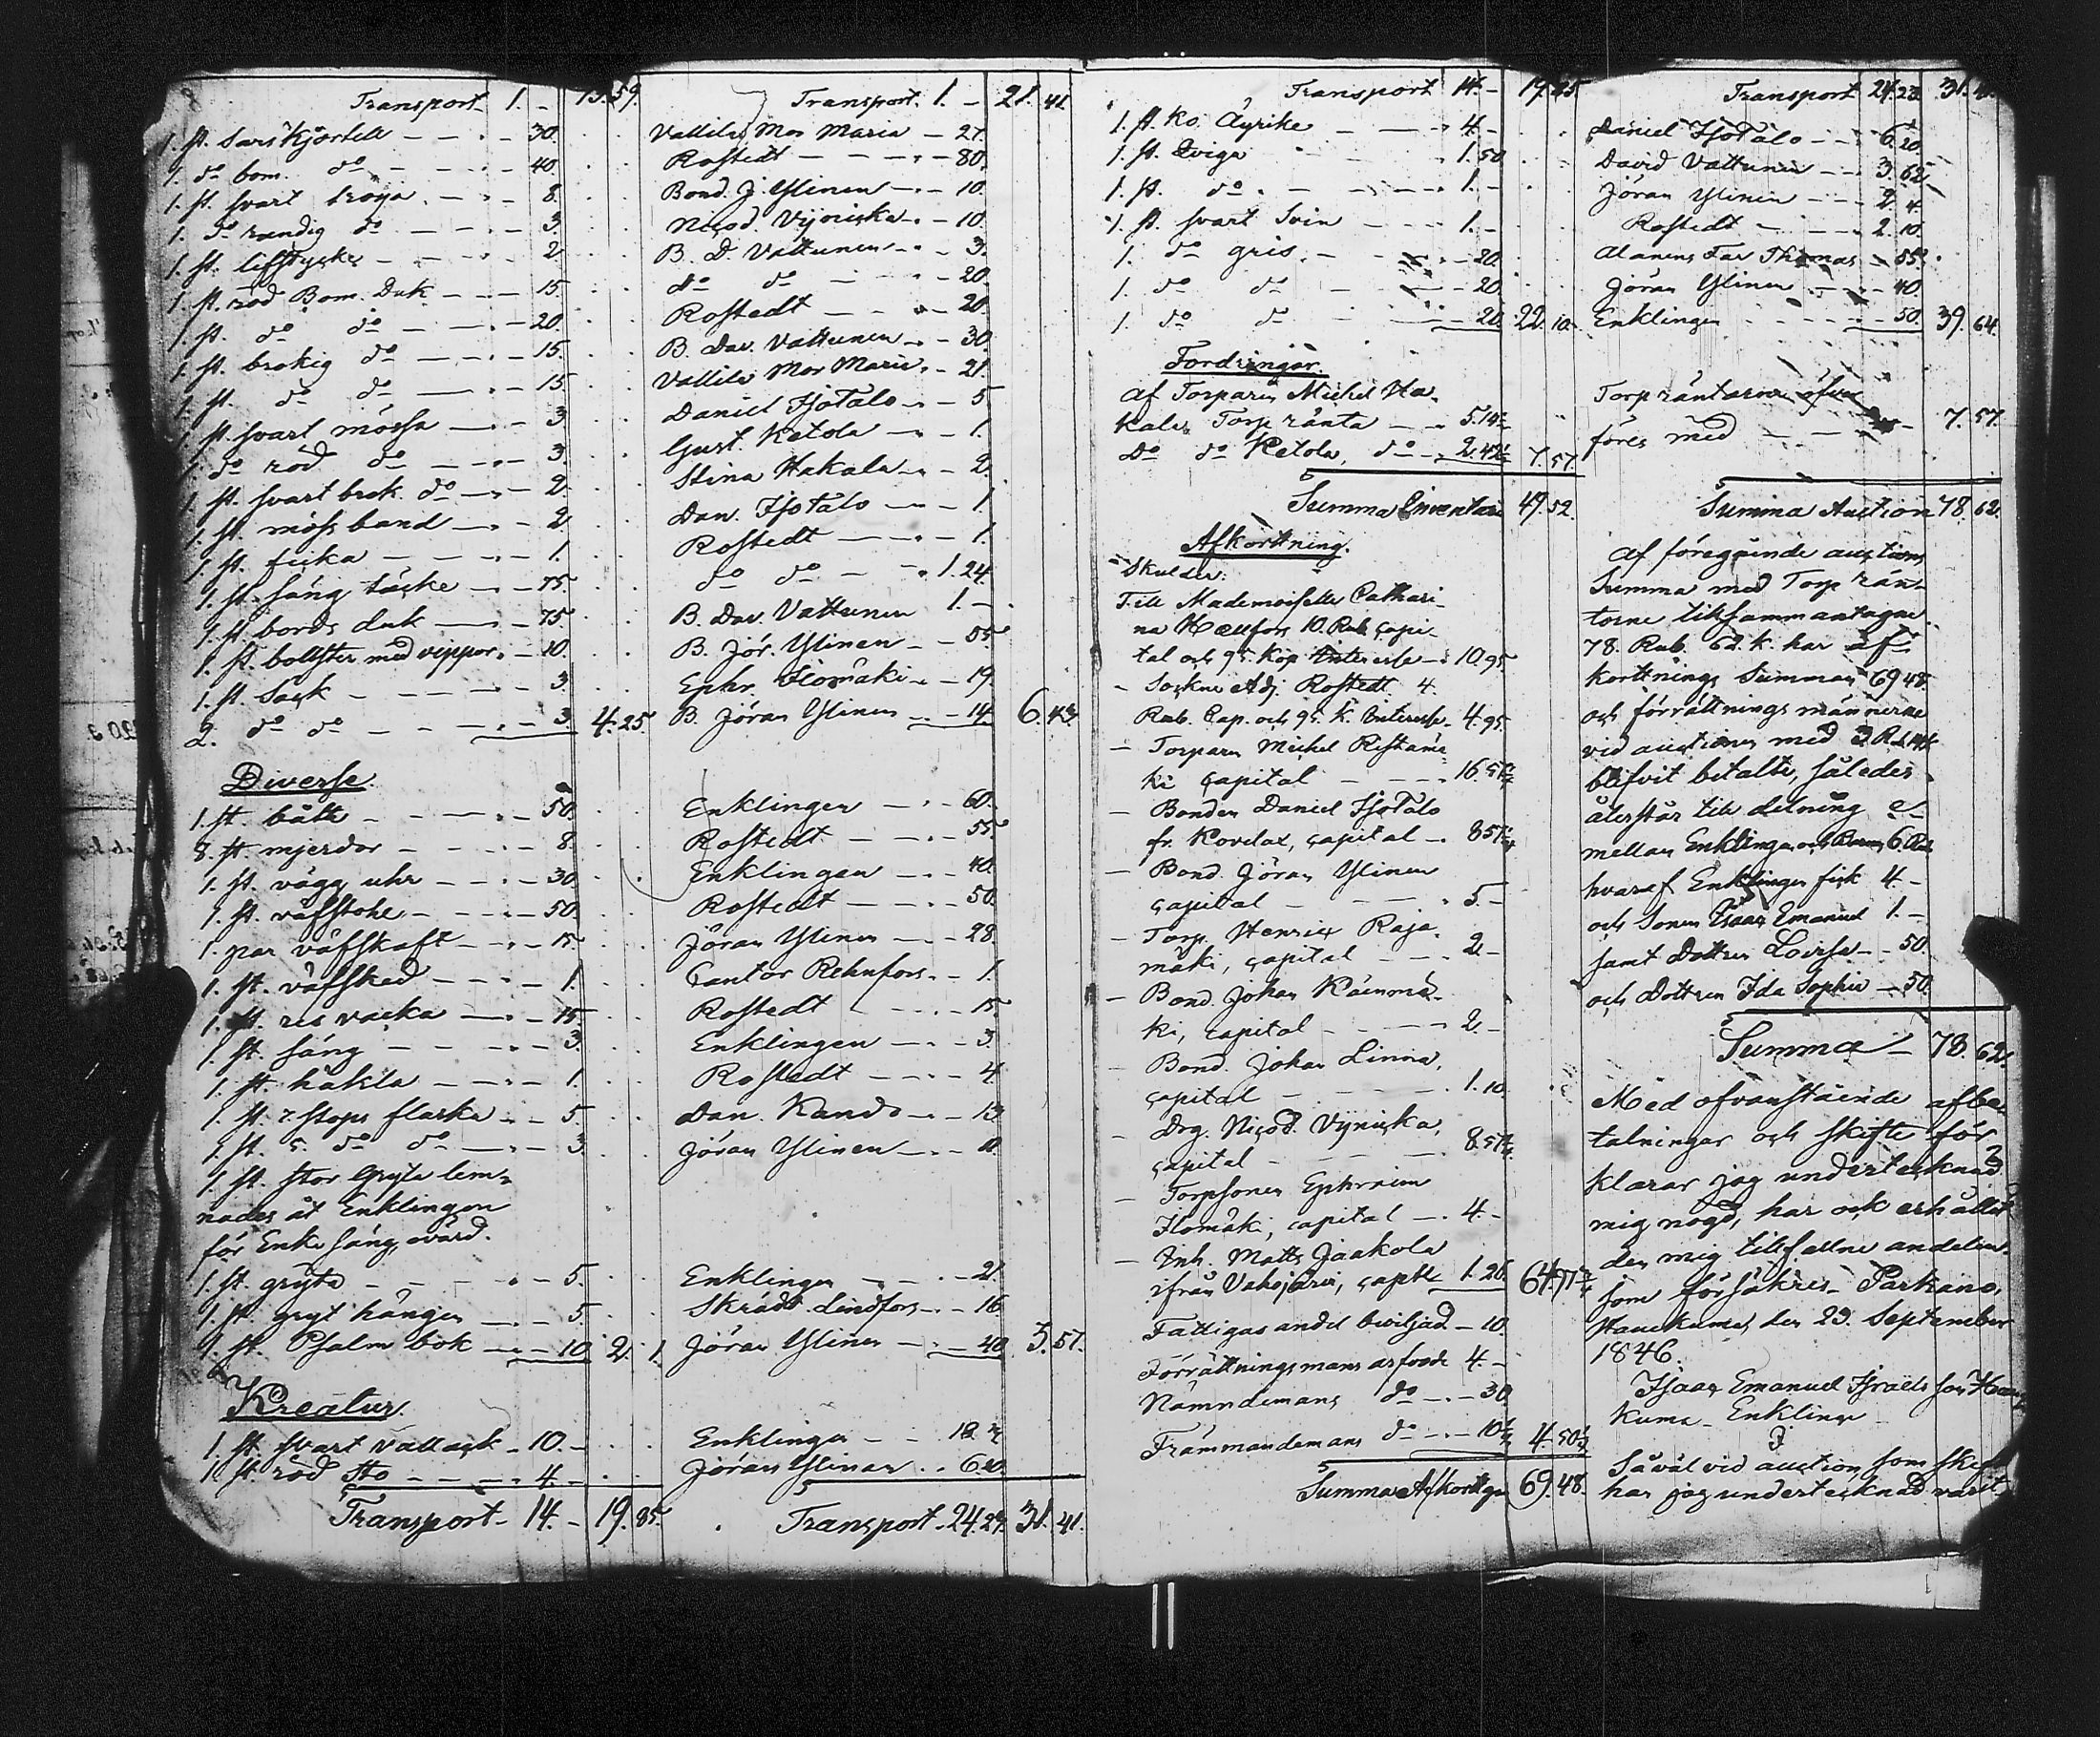 Transport 1. - 13.59.
1. st. Sarskjortell - 30.
1. do bom. do - 40.
1. st. svart tröya - 8.
1. do randig do - 3.
1. st. lifstycke - 2
1. st. röd Bom. Duk - 15.
1. st. do do - 20.
1. st. brokig do - 15.
1. st. do do - 15.
1. st. svart mössa - 3
1. do röd do - 3.
1. st. svart brok. do - 2.
1. st. mössband - 2
1. st. ficka - 1.
1. st. säng täcke - 75.
1. st. bords duk - 75
1. st. bollster med vippor - 10.
1. st. Säck - 3.
2. do do - 3. 4.25.
Diverse.
1. st. båtk - 50.
8. st. mjerdor - 8.
1. st. vägg uhr - 30.
1. st. väfstohl - 50.
1. par väfskaft - 15.
1. st. väfsked - 1.
1. st. res vacka - 15.
1. st. säng - 3.
1. st. häkla - 1.
1. st. 7 stops flaska - 5.
1. st. 5. do do - 3.
1. st. stor gryta lem-
nades åt Enklingen
för Enke säng, ovärd.
1. st. gryta - 5.
1. st. gryt hängen - 5.
1. st. Psalm bok - 10. 2. 1.
Kreatur.
1. st. svart vallack - 10. -
1. st. röd Sto - 4. -
Transport - 14. - 19.85.
Transport. 1. - 21. 41.
Vallila Mor Maria - 21.
Rostedt - 80.
Bond. J. Ylinen - 10.
Nicod. Vijnicka - 10.
B. D. Vattunen - 3.
do do - 20.
Rostedt - 20.
B. Dav. Vattunen - 30
Vallila Mor Maria - 21.
Daniel Isotalo - 5.
Gust. Ketola - 1.
Stina Hakala - 2.
Dan. Isotalo - 1
Rostedt - 1.
do do - 1.24.
B. Dav. Vattunen 1. -
B. Jör. Ylinen - 55.
Ephr. Ilomäki - 19.
B. Jöran Ylinen - 14. 6.43.
Enklingen - 60.
Rostedt - 55.
Enklingen - 40.
Rostedt - 50.
Jöran Ylinen - 28.
Cantor Rehnfors - 1.
Rostedt - 15.
Enklingen - 3.
Rostedt - 4.
Dan. Kando - 13
Jöran Ylinen - 11.
Enklingen - 21.
Skrädd. Lindfors - 16
Jöran Ylinen - 40. 3.57.
Enklingen - 18. 3.
Jöran Ylinen - 6.20.
Transport - 24.23. 31. 41.
Transport 14. - 19.85
1. st. ko. Äyrike - 4. -
1. st. Qviga - 1.50
1. st. do - 1. -
1. st. svart Svin - 1. -
1. do gris - 20.
1. do do - 20.
1. do do - 20. 22.10.
Fordringar.
af Torparen Michel Ha-
kala, Torp ränta - 5.14
Do do Ketola, do - 2.42 7.57.
Summa Inventarii 49.52.
Afkortning.
Skulder:
Till Mademoiselle Cathari-
na Hællfors 10. Rub. capi-
tal och 95. kop Interesse - 10.95
- Sockne Adj. Rostedt 4.
Rub. Cap. och 95. k. Interesse - 4.95.
- Torparen Michel Ristamä-
ki capital - 16.57
- Bonden Daniel Isotalo
fr. Kovelax, capital - 8.57
- Bond. Jöran Ylinen
capital - 5. -
- Torp. Henric Raja-
mäki, capital - 2 -
- Bond. Johan Kämmä-
ki, capital - 2 -
- Bond. Johan Linna,
capital - 1.10.
- Drg. Nicod. Vijnicka,
capital - 8.57
- Torpsonen Ephraim
Ilomäki, capital - 4. -
- Inh. Matts Jaakola
ifrån Vahojärvi, capitl. 1.26. 64.97
Fattigas andel beviljad - 10.
Förrättningsmans arfvode 4. -
Nämndemans do - 30
Främmandemans do - 10 4.50
Summa Afkortngn 69.48.
Transport 24.23. 31.41.
Daniel Isotalo - 6.20
David Vattunen - 3.62
Jöran Ylinen - 2.4.
Rostedt - 2.10.
Alanens Far Thomas - 55.
Jöran Ylinen - 40.
Enklingen - 50. 39. 64.
Torp räntorna
föres med - 7.57.
Summa Auction 78.62.
Af föregående auctions
Summa med Torp rän-
torne tilsammantagne
78. Rub. 62. k. har af-
kortnings Summan 69 48
och förrättnings männerne
vid auctionen med 3 R.
blifvit betalte, således
återstår till delning
mellan Enklingen och Barnen 6 Rub
hvaraf Enklingen fick 4. -
och Sonen Isaac Emanuel 1. -
samt Dottren Lovisa - 50.
och Dottren Ida Sophia - 50.
Summa - 78. 62.
Med ofvanstående afbe-
talningar och skifte för-
klarar jag undertecknad
mig nögd, har ock erhållit
den mig tillfallne andelen,
som försäkres. Parkano,
Hauekuma, den 23. September
1846.
Isaac Emanuel Israels son Haue-
kuma - Enkling
Såväl vid auction, som skifte
har jag undertecknad varit